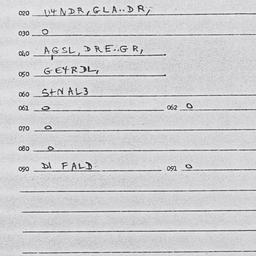 020 114NDR, GLA..DR,
030 0
040 AGSL, DRE..GR,
050 GE4RDL,
060 S+NAL3
061 0 062 0
070 0
080 0
090 DI FALD 091 0